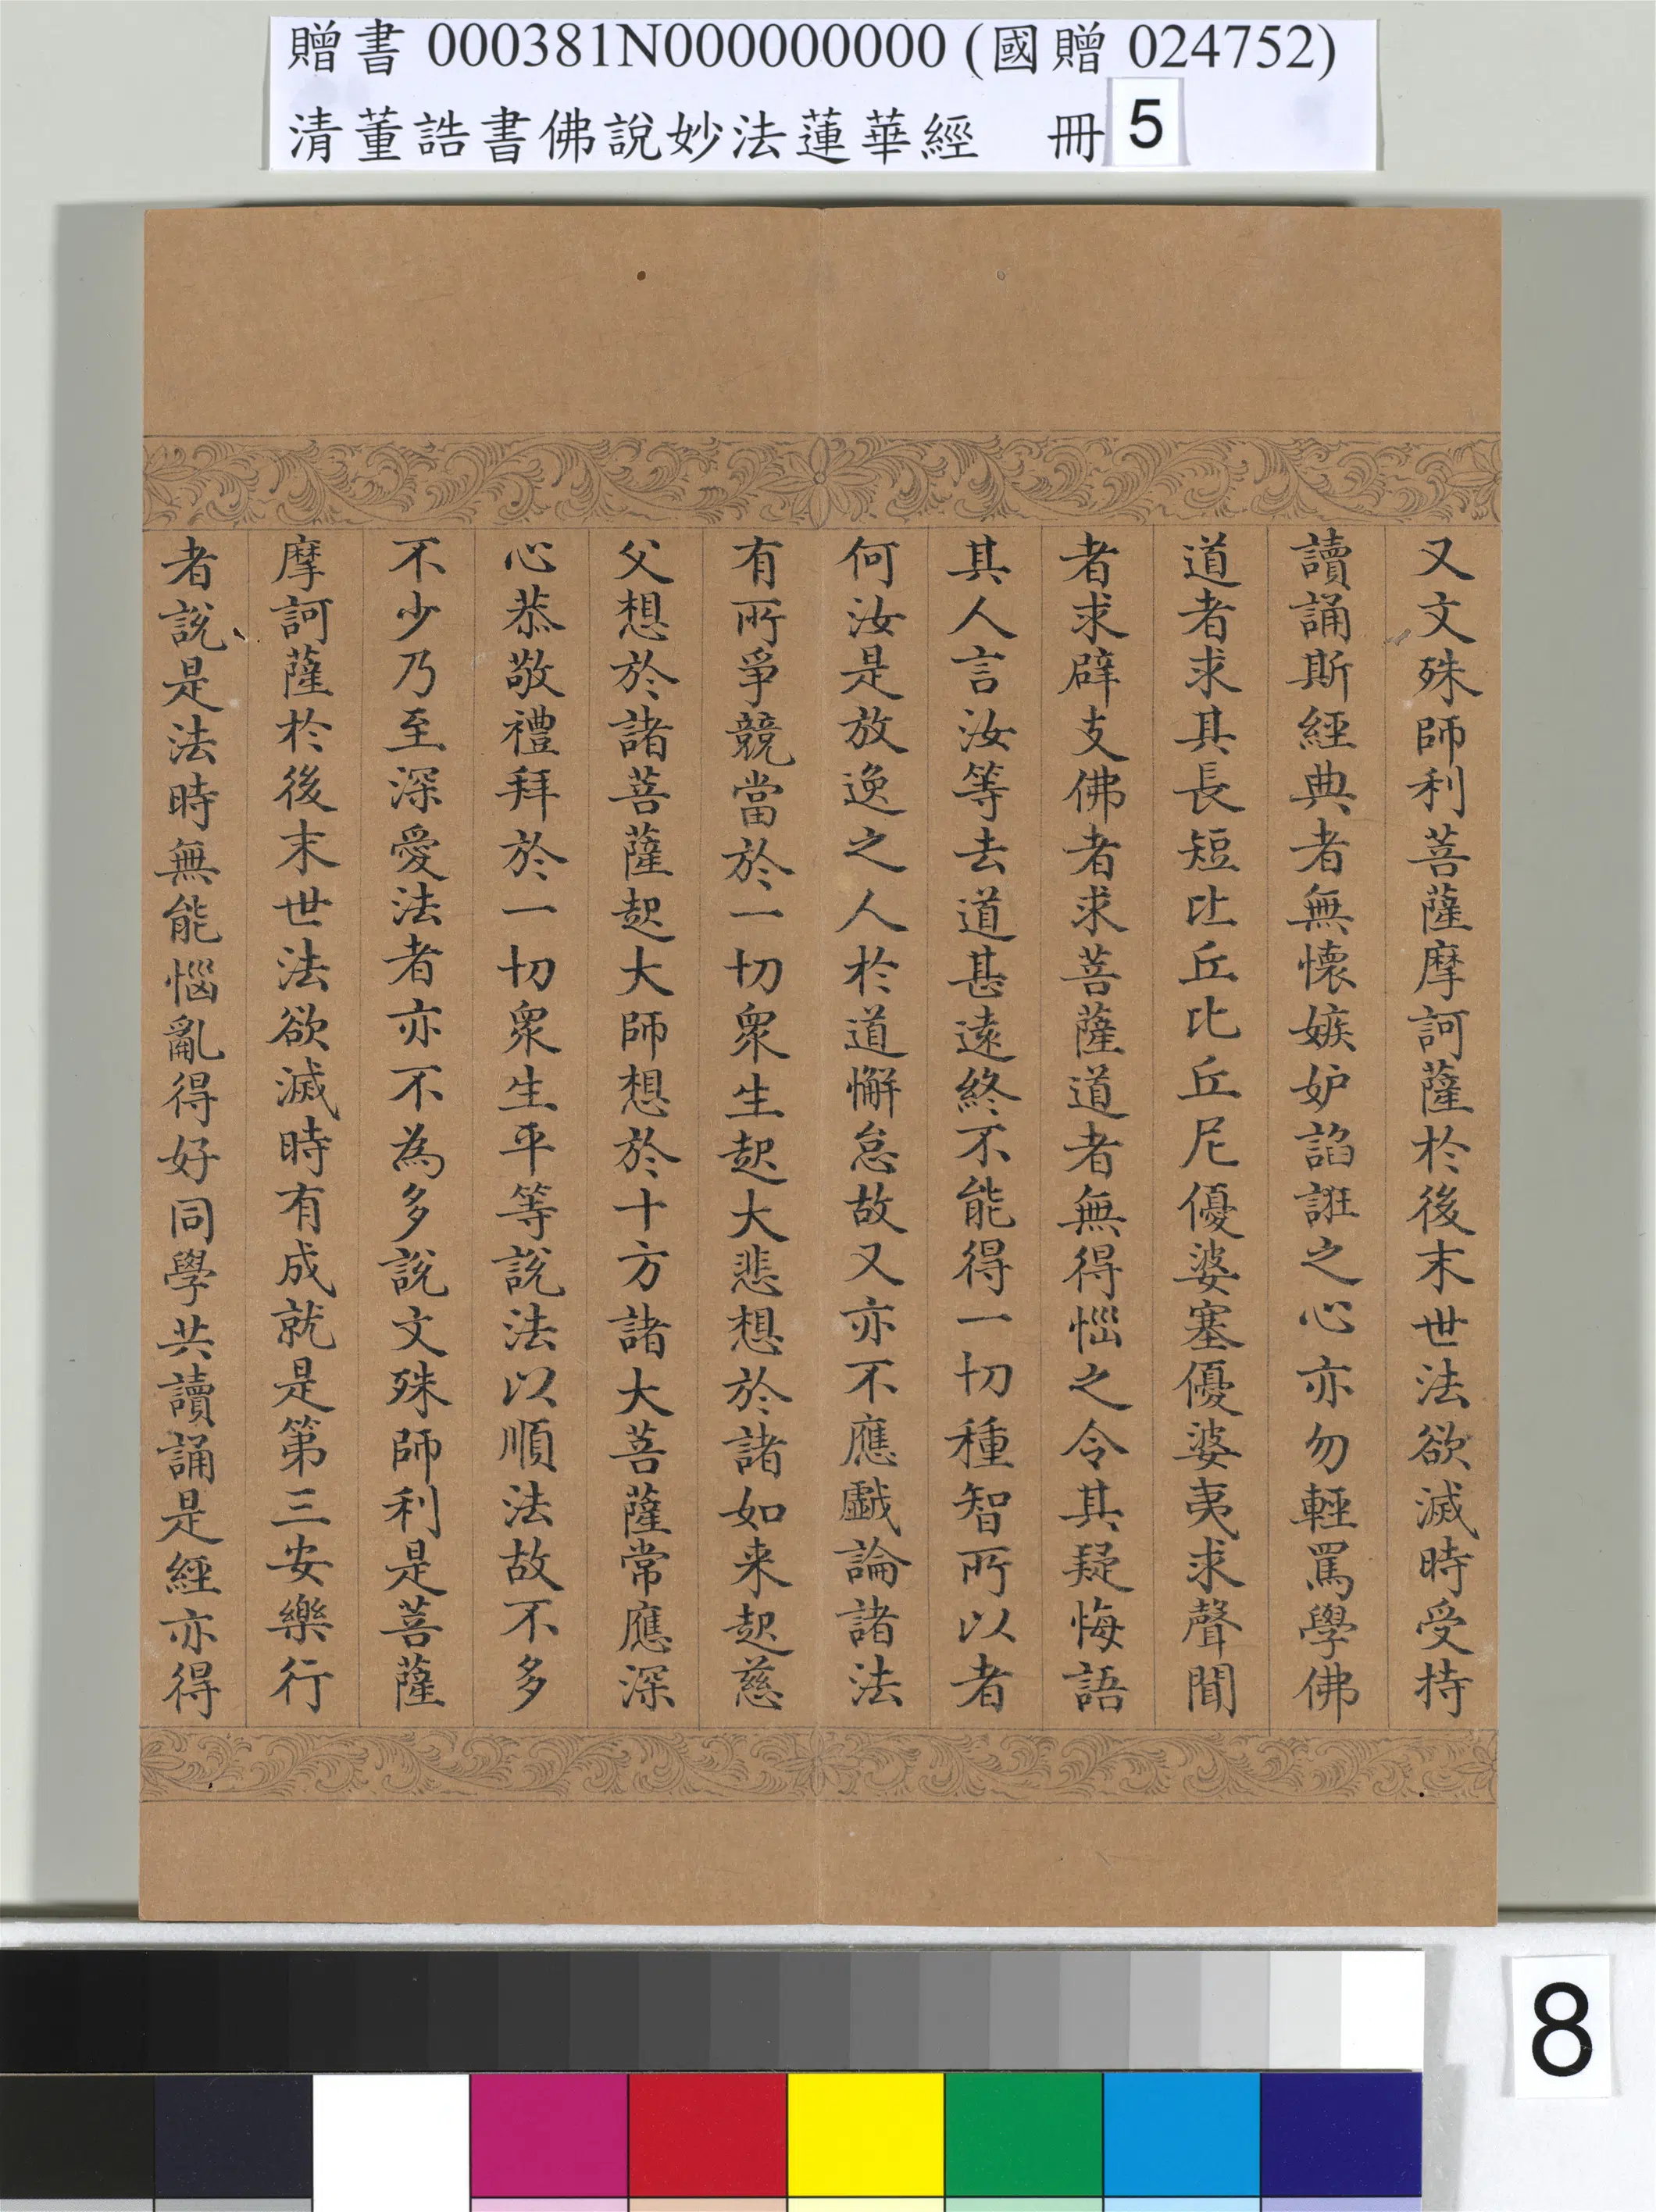 贈書 000381N000000000 (國贈 024752)
清董誥書佛說妙法蓮華經 冊 5
又文殊師利菩薩摩訶薩於後末世法欲滅時受持
讀誦斯經典者無懷嫉妒諂誑之心亦勿輕罵學佛
道者求其長短比丘比丘尼優婆塞優婆夷求聲聞
者求辟支佛者求菩薩道者無得惱之令其疑悔語
其人言汝等去道甚遠終不能得一切種智所以者
何汝是放逸之人於道懈怠故又亦不應戲論諸法
有所爭競當於一切眾生起大悲想於諸如来起慈
父想於諸菩薩起大師想於十方諸大菩薩常應深
心恭敬禮拜於一切眾生平等說法以順法故不多
不少乃至深愛法者亦不為多說文殊師利是菩薩
摩訶薩於後末世法欲滅時有成就是第三安樂行
者說是法時無能惱亂得好同學共讀誦是經亦得
8